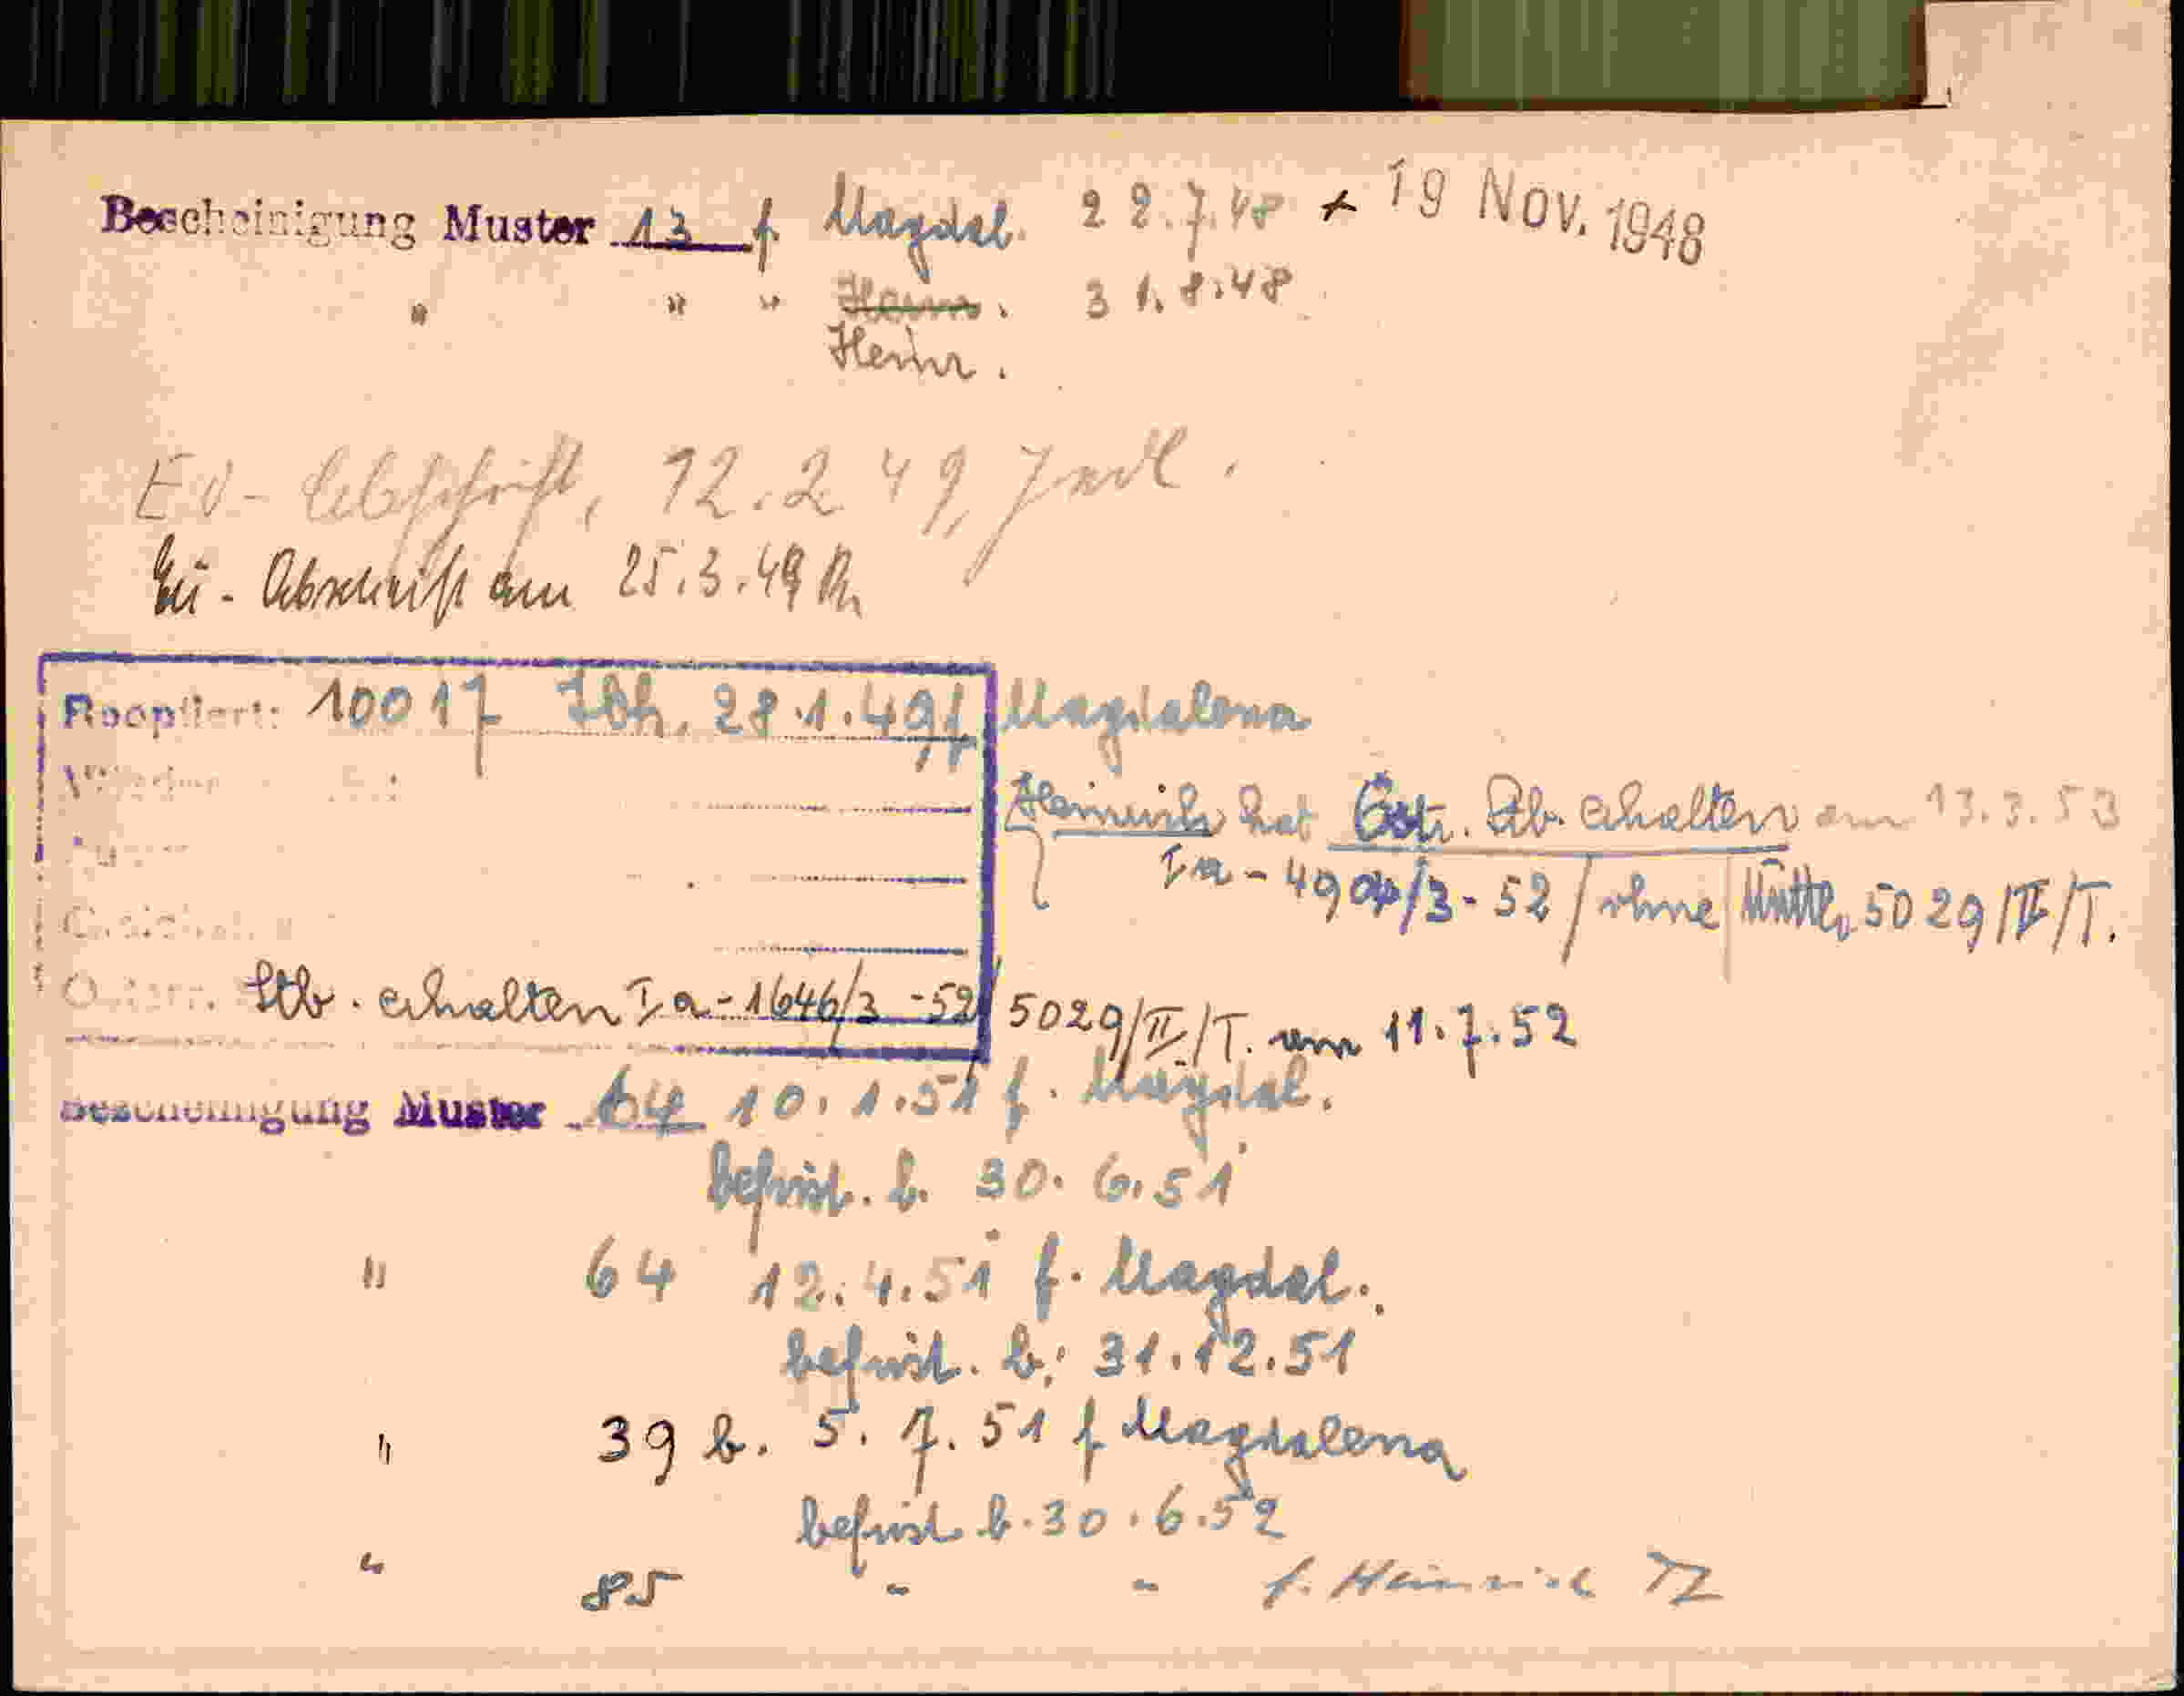 Bescheinigung Muster 13 f. Magdal. 22.7.48 + 19 Nov. 1948
" " " Heinr. 31.8.48.
Heinr.
EV- Abschrift, 12.2.49,
Abschrift am 25.3.49
Rooptiert: 10017 28.1.49 f. Magdalena
Heinrich hat Östr. Stb. erhalten am 13.3.53
Ia - 4904/3 - 52 / ohne 5029/II/T.
Österr. Stb. erhalten Ia - 1646/3 - 52/5029/II/T. am 11.7.52
Bescheinigung Muster 64 10.1.51 f. Magdal.
befrist. b. 30.6.51
" 64 12.4.51 f. Magdal.
befrist. b. 31.12.51
" 39 b. 5.7.51 f Magdalena
befrist b. 30.6.52
" 85 " " f. Heinrich